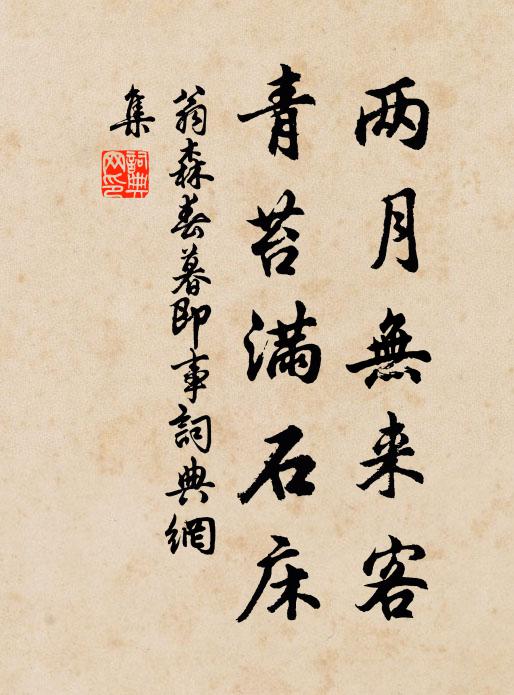 两月無来客
青苔满石床
翁森春暮即事詞典網
集
詞典
网印